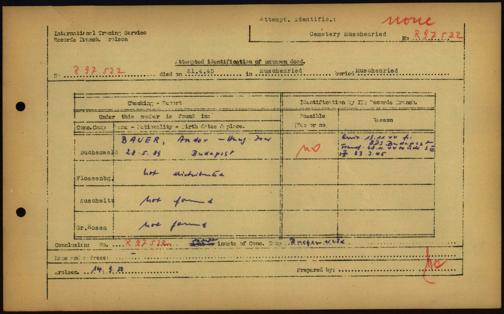 Attempt. Identific.: none
International Tracing Service
Records Branch. Arolsen
Cemetery Muschenried
No R 97 522
Attempted identification of unknown dead.
No R 97 522 died on 21.4.45 in Muschenried buried Muschenried
Checking - Report
Identification by ITS Records Branch.
Under this number is found in:
Possible
Yes or no
Reason
Conc.Camp Name - Nationality - Birth dates & place.
BAUER, Andor - Hung Jew
Buchenwald 28.5.89 Budapest
no
Flossenbg. not distributed
Auschwitz not found
Gr.Rosen not found
Conclusion: No. R 97 522 inmate of Conc. Camp
Issued papers:
Arolsen, 14.9.50
Prepared by: